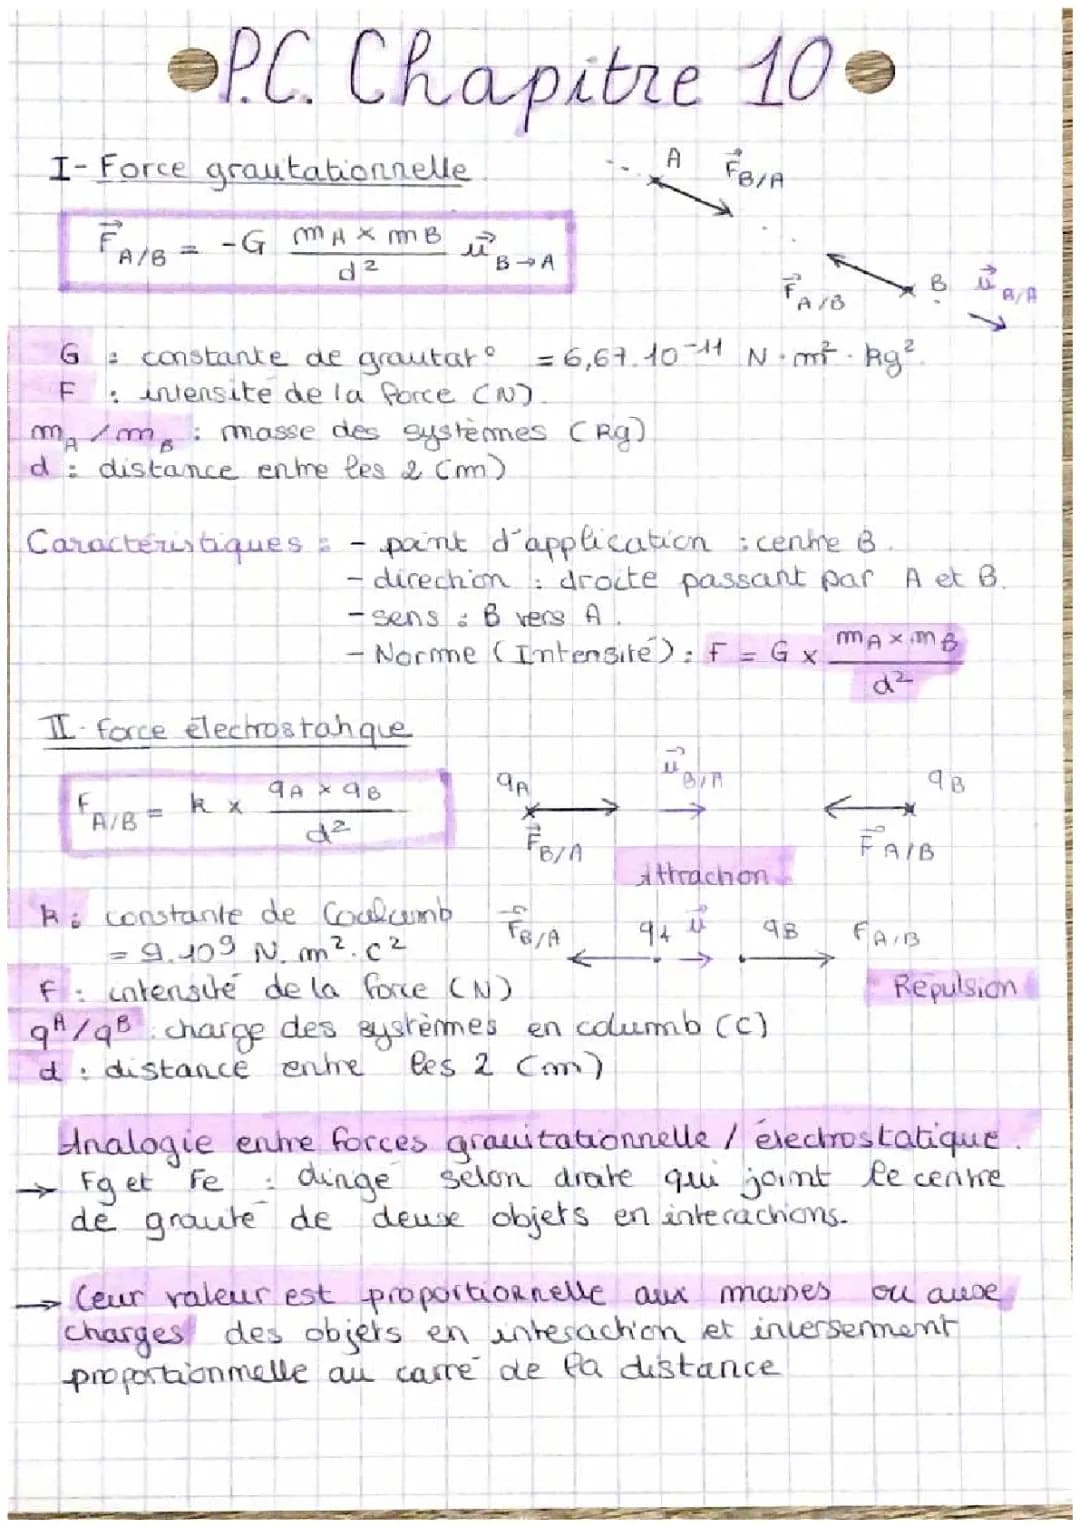 P.C. Chapitre 10
I- Force gravitationnelle
A F⃗ B/A
F⃗ A/B = -G (mA × mB)/d² u⃗ B→A
F⃗ A/B B u⃗ B/A
G : constante de gravitat° = 6,67.10⁻¹¹ N.m².kg².
F : intensité de la force (N).
mA / mB : masse des systèmes (kg)
d : distance entre les 2 (m)
Caractéristiques : - point d'application : centre B.
- direction : droite passant par A et B.
- sens : B vers A.
- Norme (Intensité) : F = G × (mA × mB)/d²
II- force électrostatique
F A/B = k × (qA × qB)/d²
qA u⃗ B/A qB
F⃗ B/A F⃗ A/B
Attraction
k : constante de Coulumb
= 9.10⁹ N.m².C²
F⃗ B/A qA u⃗ qB F A/B
Répulsion
F : intensité de la force (N)
qA/qB : charge des systèmes en columb (C)
d : distance entre les 2 (m)
Analogie entre forces gravitationnelle / électrostatique.
→ Fg et Fe : dirigé selon droite qui joint le centre
de gravité de deux objets en interactions.
→ Leur valeur est proportionnelle aux masses ou aux
charges des objets en interaction et inversement
proportionnelle au carré de la distance